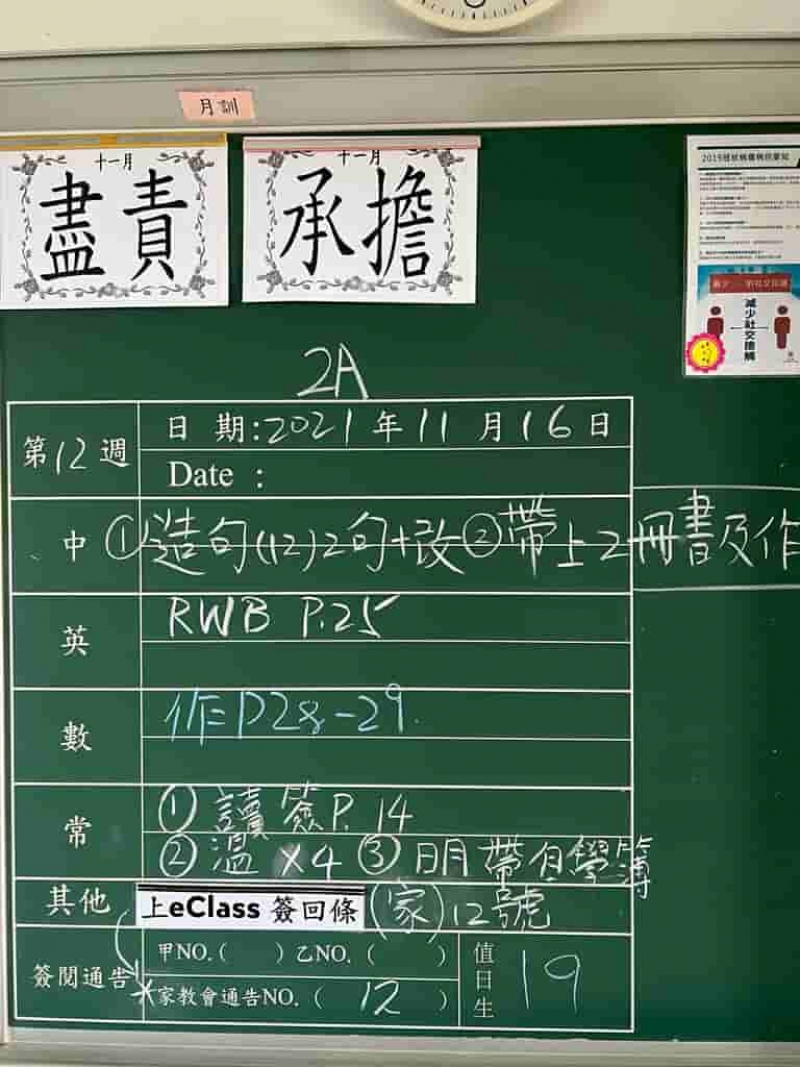 月訓
十一月
盡責
十一月
承擔
減少社交接觸
2A
第12週
日 期:2021年11月16日
Date :
中 ①造句(12)2句+改②帶上2冊書及作
英 RWB P.25
數 作P28-29.
常 ①讀簽P.14
②溫x4 ③明帶自學簿
其他 上eClass 簽回條 (家)12號
簽閱通告 甲NO.( ) 乙NO.( )
*家教會通告NO.( 12 )
值日生 19